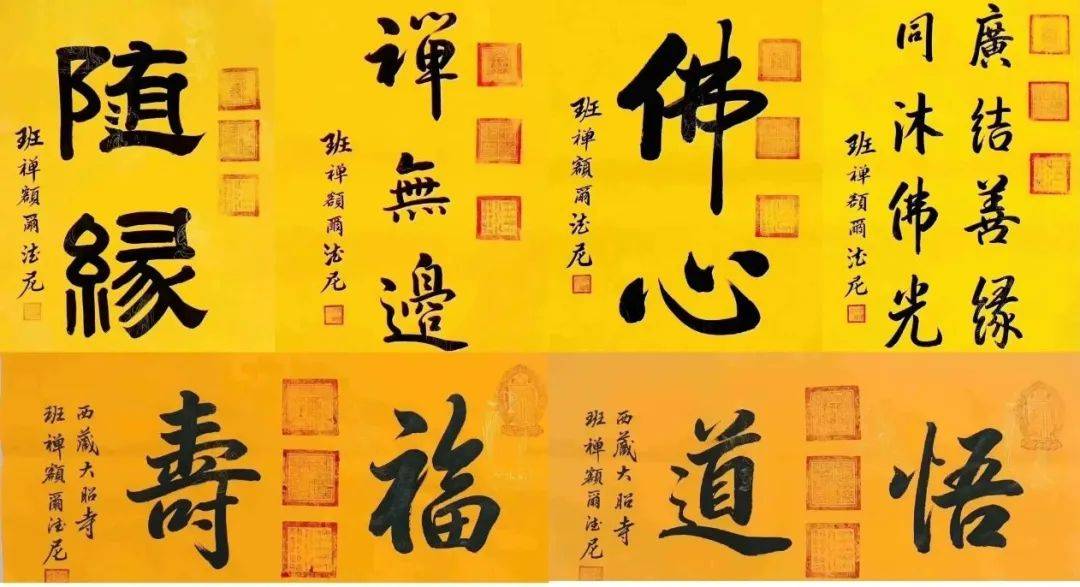 随緣
班禅額爾德尼
禪無邊
班禅額爾德尼
佛心
班禅額爾德尼
廣結善緣
同沐佛光
班禅額爾德尼
福壽
西藏大昭寺
班禅額爾德尼
悟道
西藏大昭寺
班禅額爾德尼